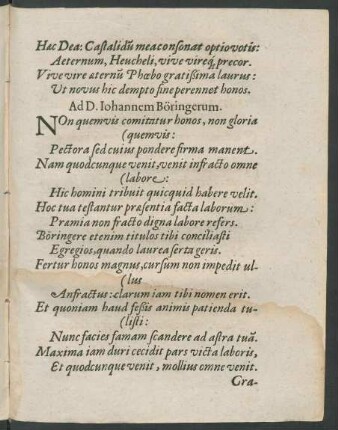 Hæc Dea: Castalidũ mea consonat optio votis:
Aeternum, Heucheli, vive vireq́; precor.
Vive vire æternũ Phœbo gratißima laurus:
Ut novus hic dempto fine perennet honos.
Ad D. Iohannem Böringerum.
NOn quemvis comitatur honos, non gloria
(quemvis:
Pectora sed cuius pondere firma manent.
Nam quodcunque venit, venit infracto omne
(labore:
Hic homini tribuit quicquid habere velit.
Hoc tua testantur præsentia facta laborum:
Præmia non fracto digna labore refers.
Böringere etenim titulos tibi conciliasti
Egregios, quando laurea serta geris.
Fertur honos magnus, cursum non impedit ul-
(lus
Anfractus: clarum iam tibi nomen erit.
Et quoniam haud feßis animis patienda tu-
(listi:
Nunc facies famam scandere ad astra tuã.
Maxima iam duri cecidit pars victa laboris,
Et quodcunque venit, mollius omne venit.
Gra-